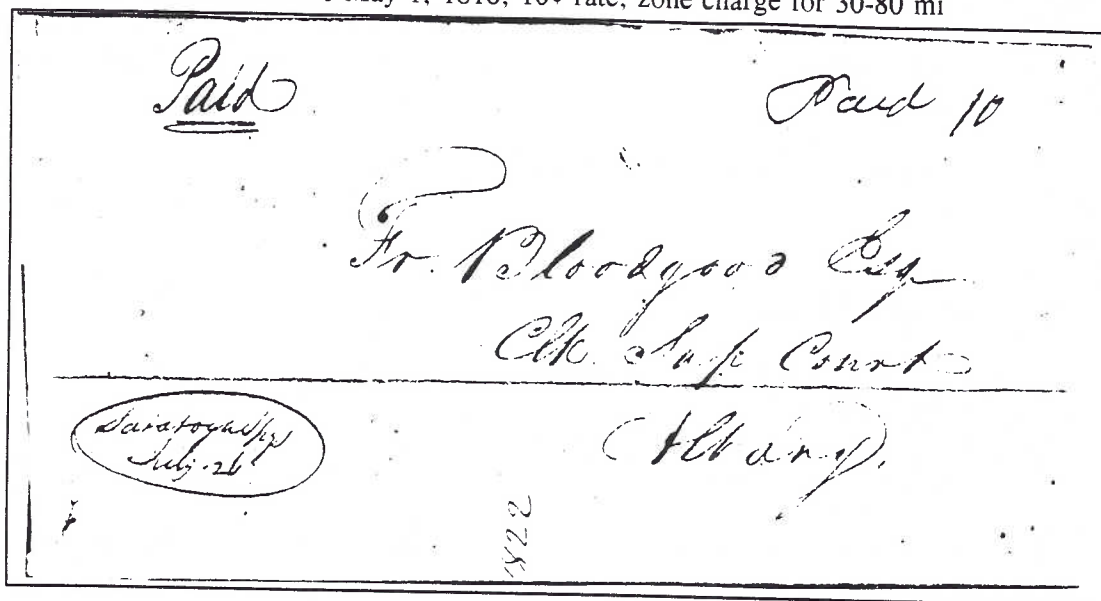 May 1, 1816, 10¢ rate, zone charge for 30-80 mi
Paid
Paid 10
Fr. Bloodgood Esq
Clk Sup Court
Albany.
Saratoga Spgs
July 26
1822